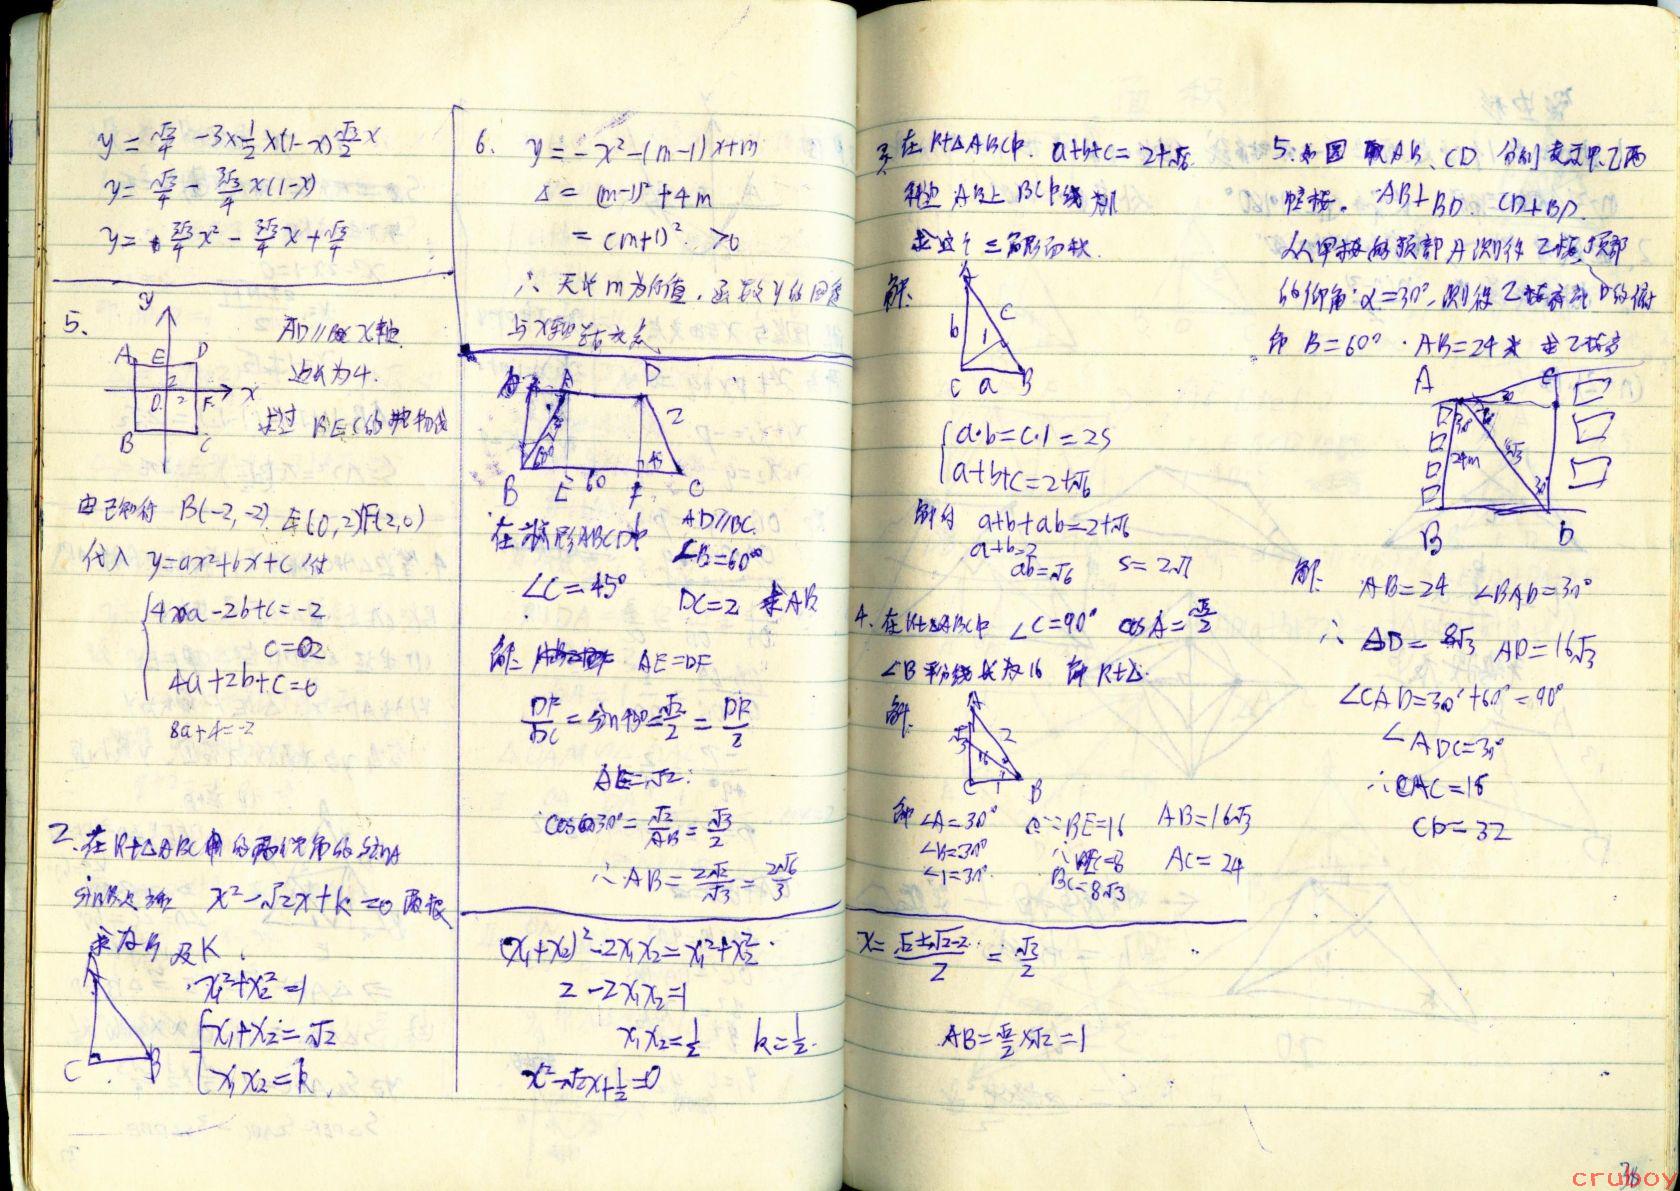 y = √3/4 - 3×1/2 x(1-x) √3/2 x
y = √3/4 - 3√3/4 x(1-x)
y = 3√3/4 x² - 3√3/4 x + √3/4
5.
y
AD∥BC∥X轴
边长为4.
A E D
2
O 2 F x
B C
求过 B E C的抛物线
由已知得 B(-2,-2) E(0,2) F(2,0)
代入 y=ax²+bx+c 得
4a-2b+c=-2
c=2
4a+2b+c=0
8a+4=-2
2. 在Rt△ABC中的两锐角的sinA
sinB是方程 x²-√2x+k=0 两根
求 及K.
A
x₁²+x₂²=1
x₁+x₂=√2
x₁x₂=k
C B
6. y=-x²-(m-1)x+m
Δ=(m-1)²+4m
=(m+1)² ≥0
∴ 无论m为何值,函数y的图象
与x轴总有交点
A D
2
60° 45
B E 60 F C
在梯形ABCD中 AD∥BC
∠B=60°
∠C=45° DC=2 求AB
解: AE=DF
DF/DC=sin45°=√2/2=DF/2
AE=√2
cos30°=√2/AB=√3/2
∴AB=2√2/√3=2√6/3
(x₁+x₂)²-2x₁x₂=x₁²+x₂²
2-2x₁x₂=1
x₁x₂=1/2 k=1/2
x²-√2x+1/2=0
3 在Rt△ABC中. a+b+c=2+√6
斜边AB上 中线为1
求这个三角形面积.
解:
A
b 1 c
C a B
a·b=c·1=2S
a+b+c=2+√6
解得 a+b+ab=2+√6
a+b=2
ab=√6 S=2√6
4. 在Rt△ABC中 ∠C=90° cosA=√3/2
∠B平分线长为16 解Rt△.
解:
A
√3 2
16
C 1 B
解 ∠A=30° ∵BE=16 AB=16√3
∠B=30° ∴EC=8 AC=24
∠1=30° BC=8√3
x=(√2±√2-2)/2=√2/2
AB=√2/2×√2=1
5. 如图 AB、CD 分别表示甲乙两
幢楼. AB⊥BD CD⊥BD.
从甲楼的顶部A测得乙楼顶部
的仰角α=30°,测得乙楼底部D的俯
角 B=60°. AB=24米 求乙楼高
A C
30
30° 60
24m 8√3
30°
B D
解: AB=24 ∠BAD=30°
∴ BD=8√3 AD=16√3
∠CAD=30°+60°=90°
∠ADC=30°
∴ AC=16
CD=32
cruboy